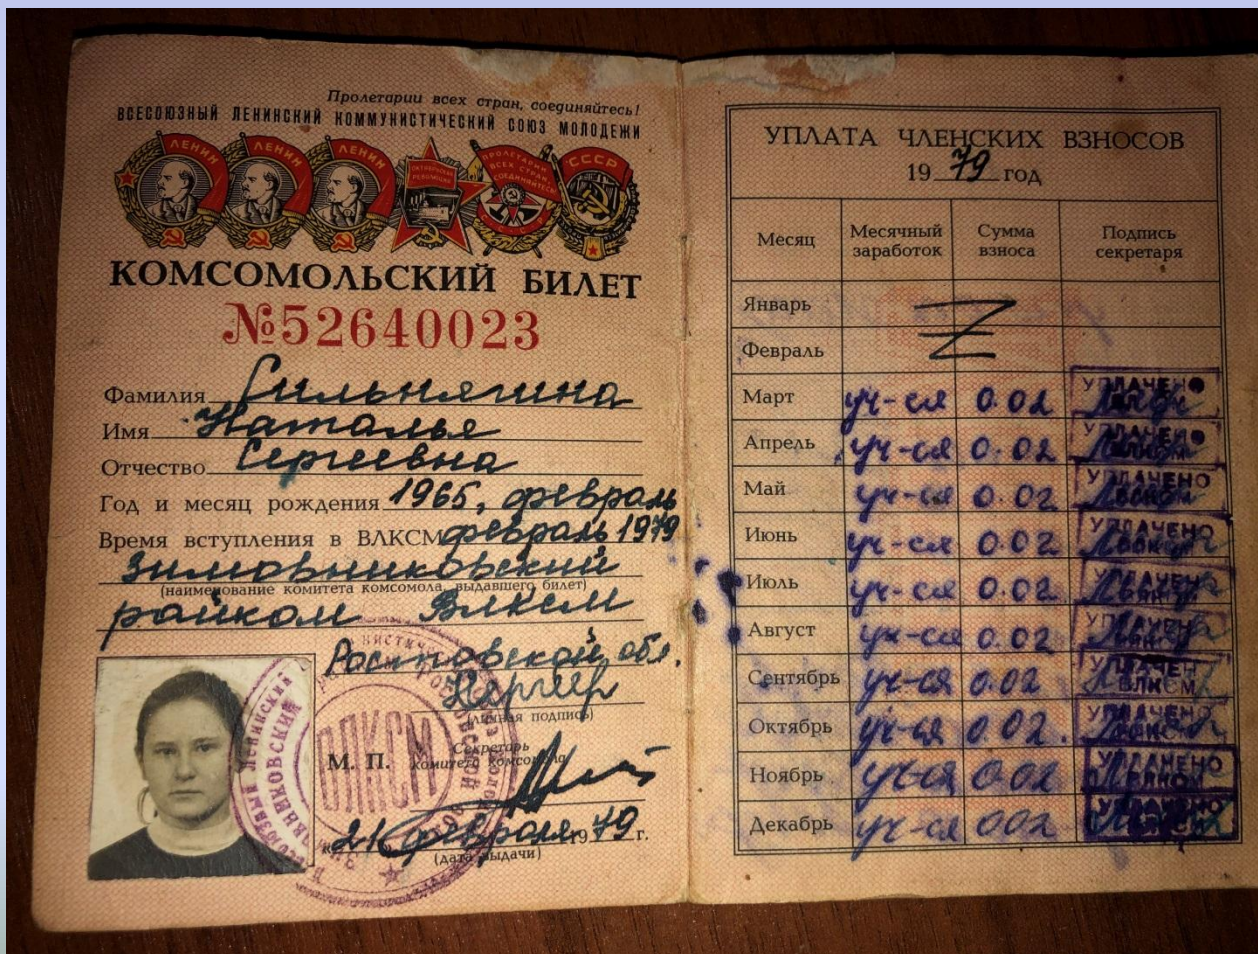 Пролетарии всех стран, соединяйтесь!
ВСЕСОЮЗНЫЙ ЛЕНИНСКИЙ КОММУНИСТИЧЕСКИЙ СОЮЗ МОЛОДЕЖИ
ЛЕНИН ЛЕНИН ЛЕНИН ОКТЯБРЬСКАЯ РЕВОЛЮЦИЯ ПРОЛЕТАРИИ ВСЕХ СТРАН СОЕДИНЯЙТЕСЬ! СССР
КОМСОМОЛЬСКИЙ БИЛЕТ
№52640023
Фамилия Сильнягина
Имя Наталья
Отчество Сергеевна
Год и месяц рождения 1965, февраль
Время вступления в ВЛКСМ февраль 1979
Зимовниковский
(наименование комитета комсомола, выдавшего билет)
райком ВЛКСМ
Ростовской обл.
(личная подпись)
ВЛКСМ
М. П. Секретарь
комитета комсомола
«21» февраля 1979 г.
(дата выдачи)
УПЛАТА ЧЛЕНСКИХ ВЗНОСОВ
1979 год
Месяц Месячный заработок Сумма взноса Подпись секретаря
Январь
Февраль
Март уч-ся 0.02 УПЛАЧЕНО
Апрель уч-ся 0.02 УПЛАЧЕНО
Май уч-ся 0.02 УПЛАЧЕНО
Июнь уч-ся 0.02 УПЛАЧЕНО
Июль уч-ся 0.02 УПЛАЧЕНО
Август уч-ся 0.02 УПЛАЧЕНО
Сентябрь уч-ся 0.02 ВЛКСМ
Октябрь уч-ся 0.02. УПЛАЧЕНО
Ноябрь уч-ся 0.02 УПЛАЧЕНО
Декабрь уч-ся 002 УПЛАЧЕНО